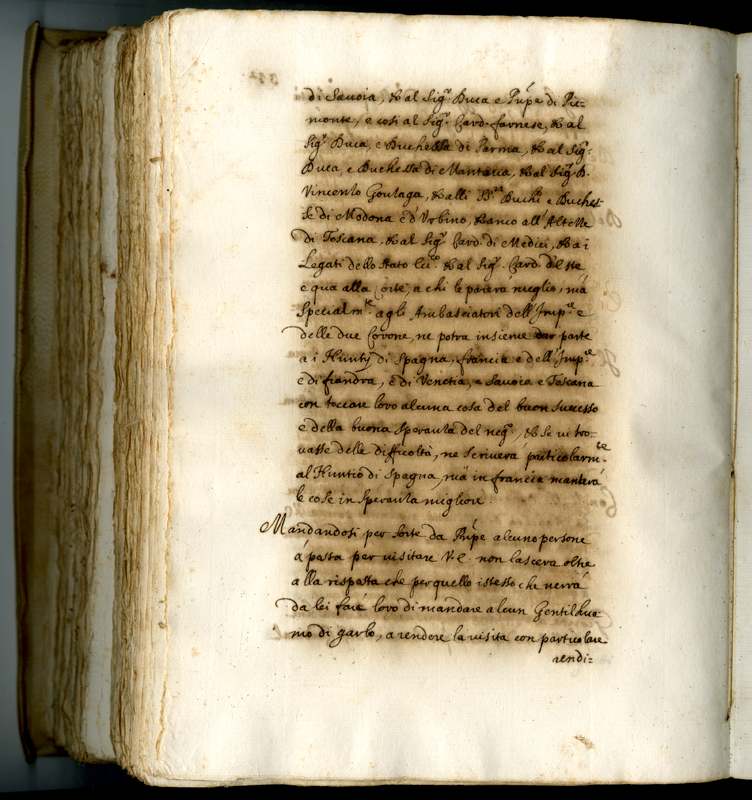 di Sauoia, & al Sig.r Duca e Prīpe di Pie=
monte, e così al Sig.r Card. farnese, & al
Sig.r Duca, e Duchessa di Parma, & al Sig.r
Duca, e Duchessa di Mantoua, & al Sig.r D.
Vincenzo Gonzaga, & alli Duchi e Duches=
se di Modona e d'Vrbino, & anco all'Altezze
di Toscana, & al Sig.r Card. di Medici, & a i
Legati dello Stato & al Sig.r Card. d'Este
e qua alla Corte, a chi le parerà meglio, mà
Specialm.te agli Ambasciatori dell'Imp.re e
delle due Corone, ne potrà insieme dar parte
a i Nuntij di Spagna, francia e dell'Imp.re
e di fiandra, e di Venetia, e Sauoia e Toscana
con toccare loro alcuna cosa del buon successo
e della buona speranza del neg.o, & se ui tro=
uasse delle difficoltà, ne scriuerà particolarm.te
al Nuntio di Spagna, mà in francia manterrà
le cose in speranza migliore.
Mandandosi per sorte da Prīpe alcuno persone
à posta per uisitare V.E. non lascerà oltre
alla risposta che per quello istesso che uerrà
da lei farà loro di mandare alcun Gentilhuo=
mo di garbo, a rendere la uisita con particolare
rendi=